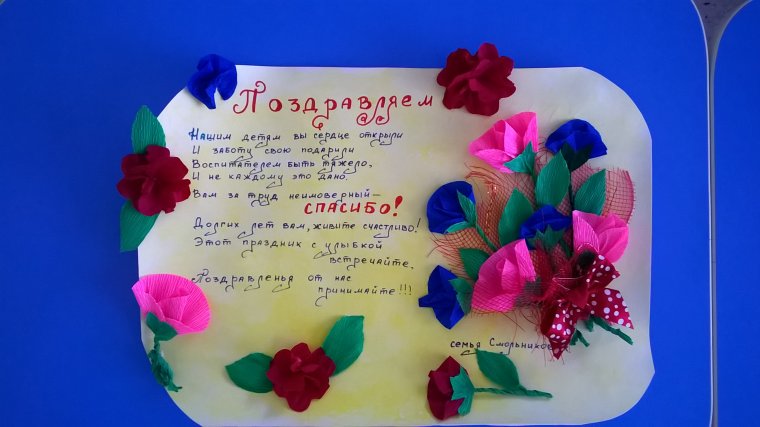 Поздравляем
Нашим детям вы сердце открыли
И заботу свою подарили
Воспитателем быть тяжело,
И не каждому это дано.
Вам за труд неимоверный –
СПАСИБО!
Долгих лет вам, живите счастливо!
Этот праздник с улыбкой
встречайте,
Поздравленья от нас
принимайте!!!
семья